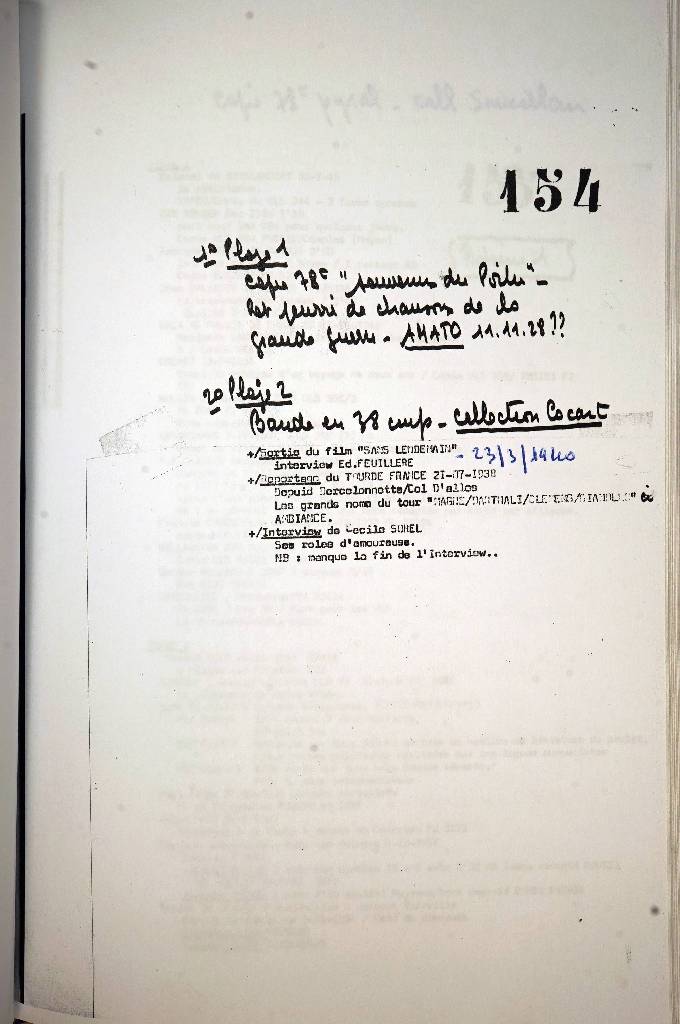 154
1° Plage 1
Copie 78t "souvenirs du Poilu" -
Pot pourri de chansons de la
grande guerre - AMATO 11.11.28??
2° Plage 2
Bande en 38 cm/s - Collection Cocart
+/Sortie du film "SANS LENDEMAIN" - 23/3/1940
interview Ed.FEUILLERE
+/Reportage du TOURDE FRANCE 21-07-1938
Depuid Barcelonnette/Col D'allos
Les grands noms du tour
AMBIANCE.
+/Interview de Cecile SOREL
Ses roles d'amoureuse.
NB : manque la fin de l'Interview..